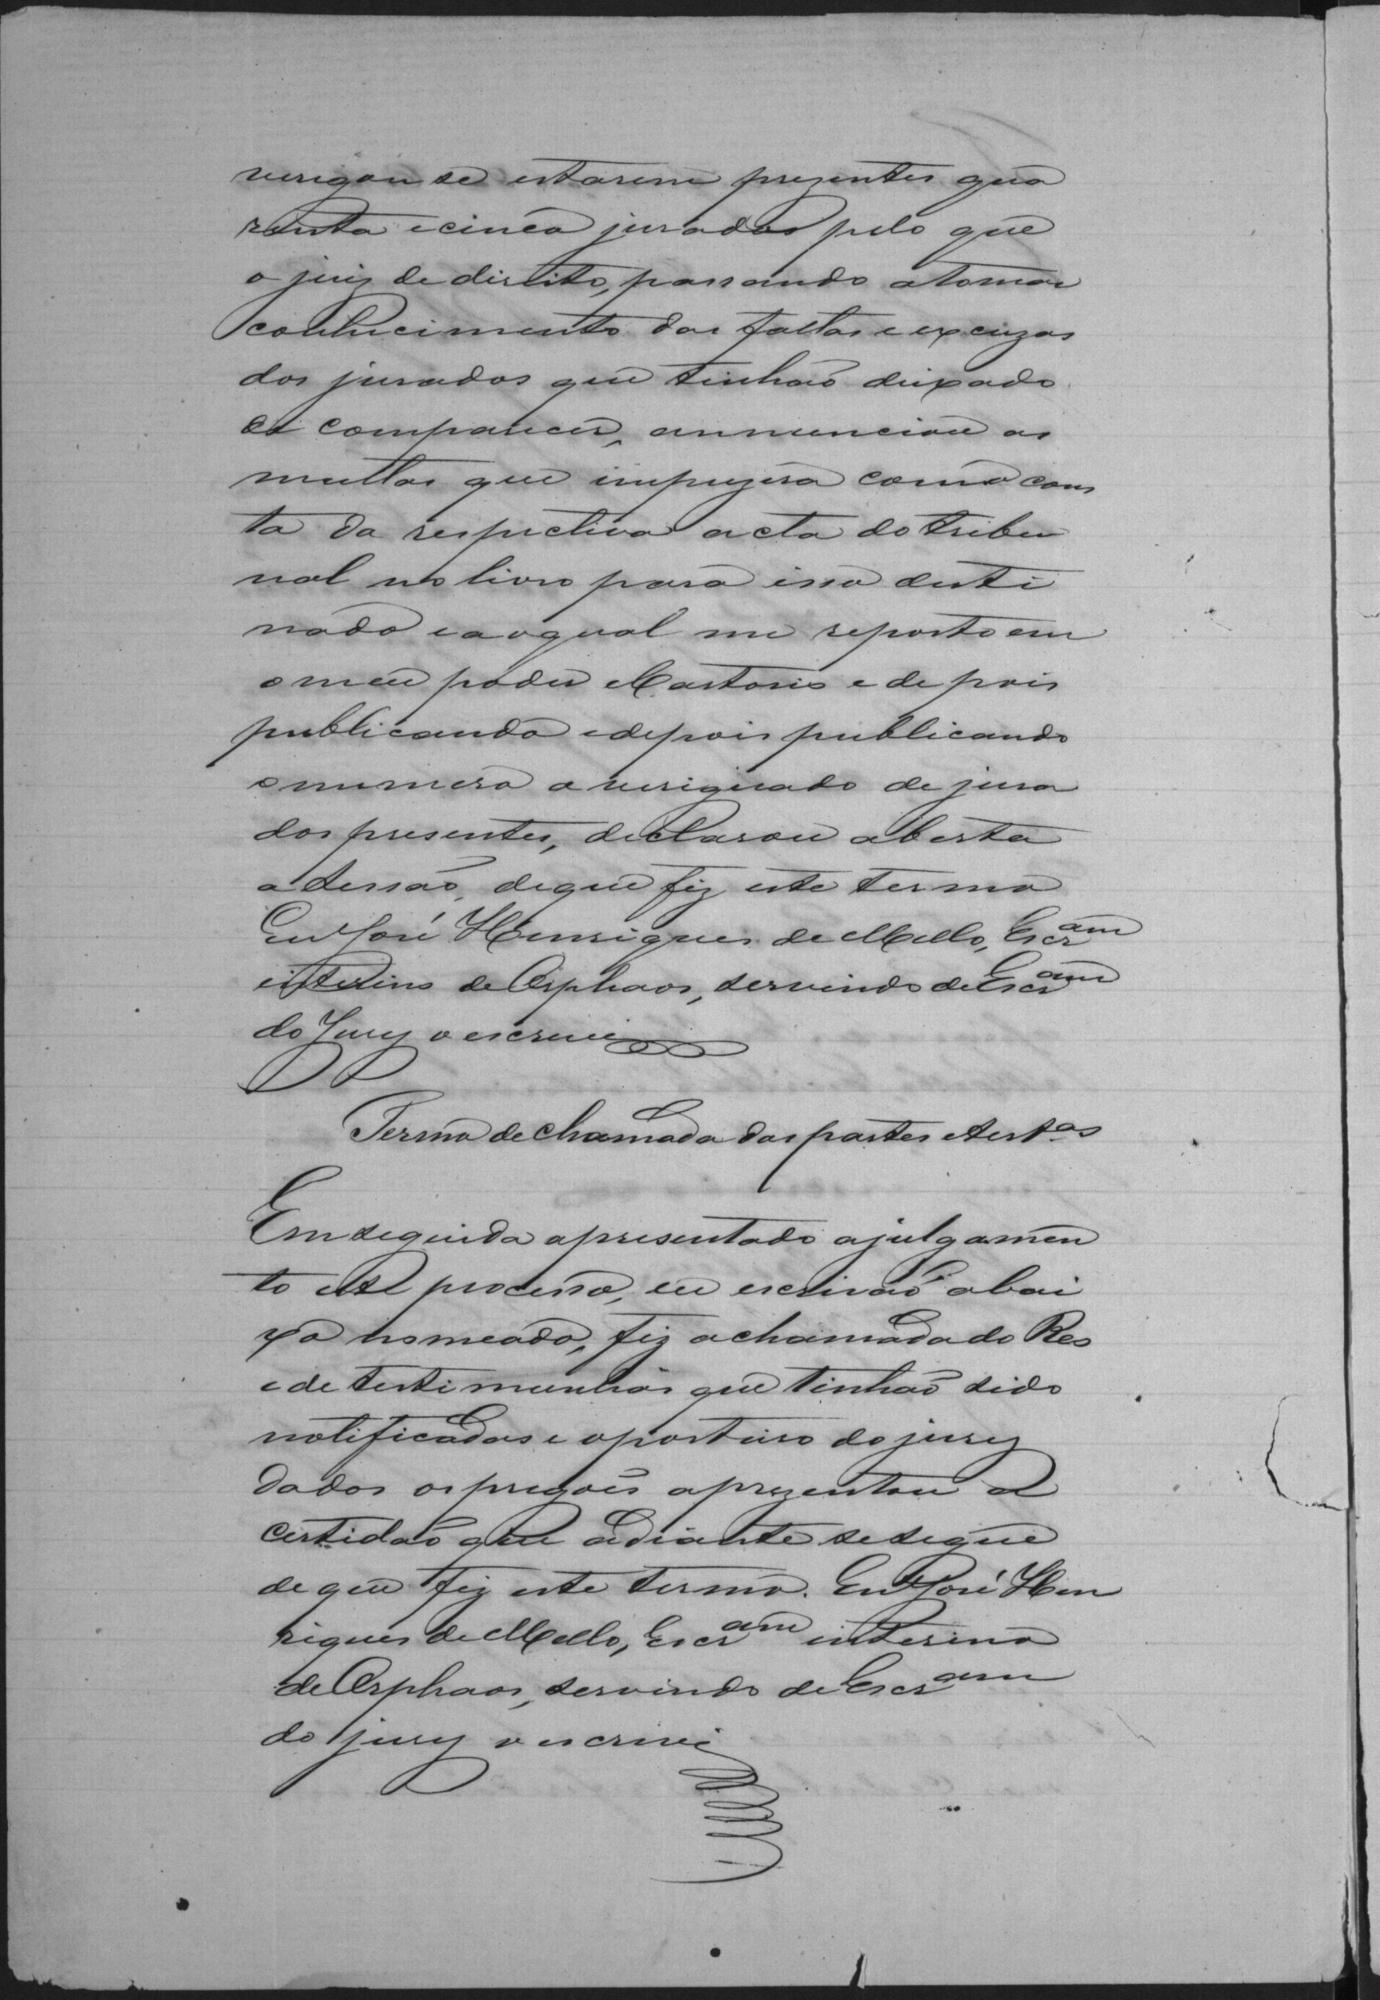 verigou se estarem prezentes qua
renta e cinco jurados pelo que
o juiz de direito, passando a tomar
conhecimento das faltas e excuzas
dos jurados que tinhão deixado
de comparecer, annunciou as
multas que impuzera como cons
ta da respectiva acta do tribu
nal no livro para isso desti
nado e ao qual me reporto em
o meu poder e Cartorio e depois
publicando e depois publicando
o numero averiguado de jura
dos presentes, declarou aberta
a sessão, de que fiz este termo
Eu José Henriques de Mello, Escr.am
interino de Orphaos, servindo de Escr.am
do Jury o escrevi
Termo de chamada das partes e test.as
Em seguida apresentado a julgamen
to este processo, eu escrivão abai
xo nomeado, fiz a chamada do Reo
e de testimunhas que tinhão sido
notificadas e o porteiro do jury
dados os pregões aprezentou a
certidão que adiante se segue
de que fiz este termo. Eu José Hen
riques de Mello, Escr.am interino
de Orphaos, servindo de Escr.am
do jury o escrevi